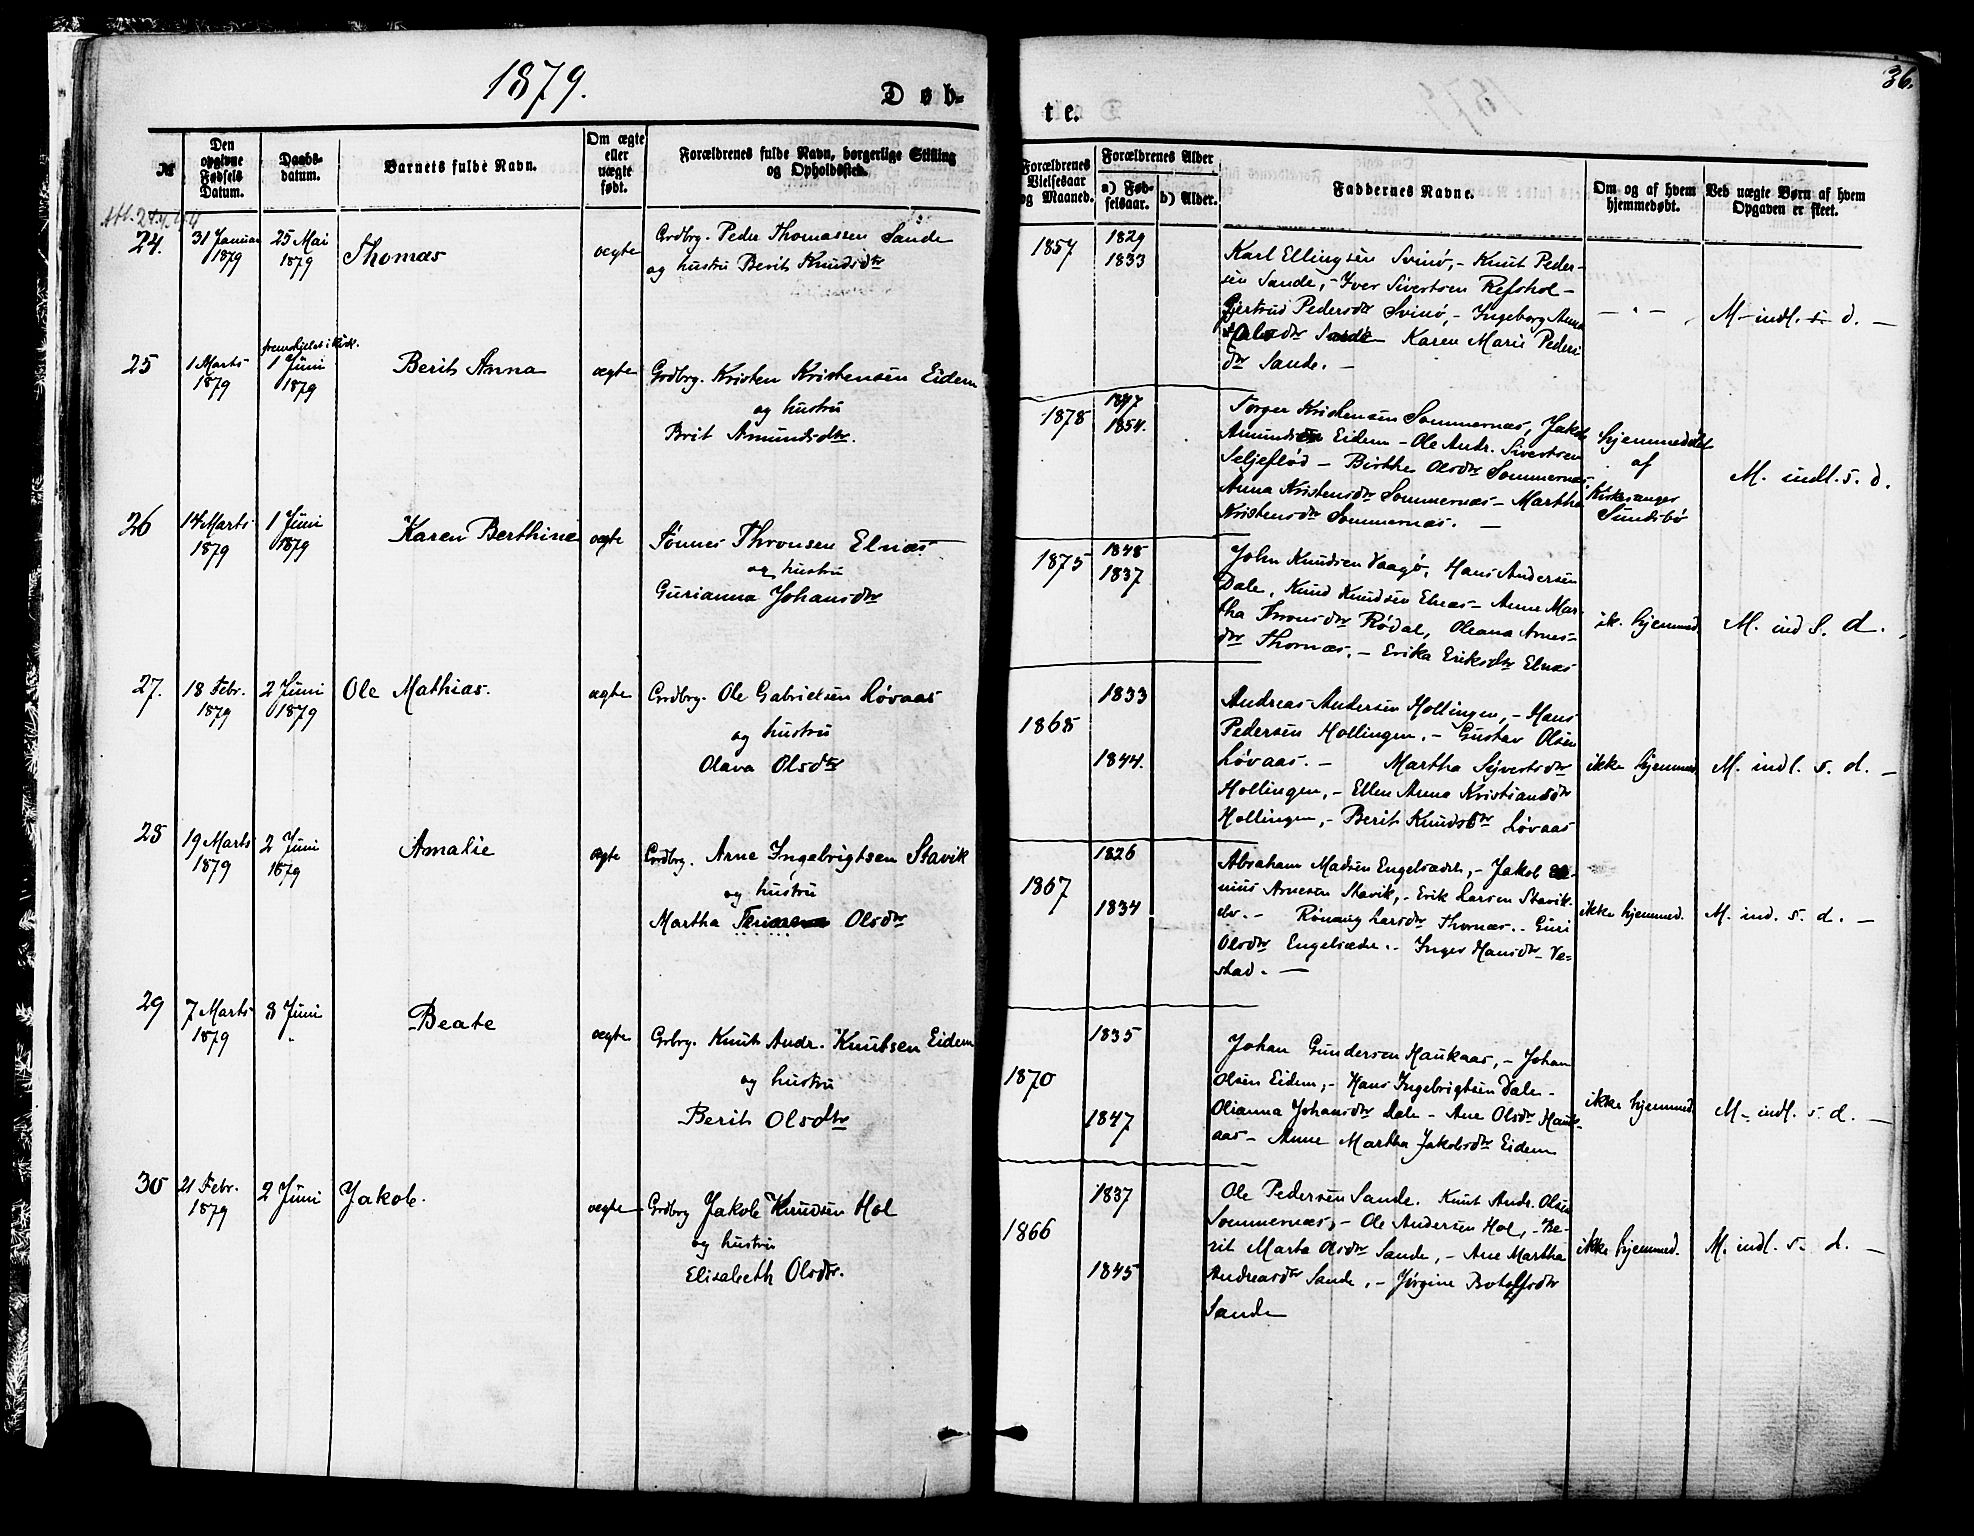 1879.
Døb-
№
Den opgivne Fødsels Datum.
Daabs-datum.
Barnets fulde Navn.
Om ægte eller uægte født.
Forældrenes fulde Navn, borgerlige Stilling og Opholdssted.
24.
31 Januar 1879
25 Mai 1879
Thomas
ægte
Grdbrg. Peder Thomassen Sande
og hustru Berit Knudsdtr
25
1 Marts 1879
1 Juni 1879
Berit Anna
ægte
Grdbrg. Kristen Kristensen Eidem
og hustru
Brit Amundsdtr.
26
14 Marts 1879
1 Juni 1879
Karen Berthine
ægte
Tønnes Thronsen Elnæs
og hustru
Gurianna Johansdtr
27.
18 Febr. 1879
2 Juni 1879
Ole Mathias.
ægte
Grdbrg. Ole Gabrielsen Løvaas
og hustru
Olava Olsdtr
28
19 Marts 1879
2 Juni 1879
Amalie
ægte
Grdbrg. Arne Ingebrigtsen Stavik
og hustru
Martha Olsdtr
29
7 Marts 1879
3 Juni "
Beate
ægte
Grbrg. Knut Andr. Knutsen Eidem
og hustru
Berit Olsdtr
30
21 Febr. 1879
2 Juni
Jakob.
ægte
Grdbrg Jakob Knudsen Hol
og hustru
Elisabeth Olsdtr.
te.
36.
Forældrenes Vielsesaar og Maaned.
Forældrenes Alder
a) Fødselsaar.
b) Alder.
Faddernes Navne.
Om og af hvem hjemmedøbt.
Ved uægte Børn af hvem Opgaven er skeet.
1857
1829
1833
Karl Ellingsen Svinø, - Knut Peder-
sen Sande, - Iver Sivertsen Refshol -
Gjertrud Pedersdtr Svinø, - Ingeborg Anna
Olsdtr Sande - Karen Marie Peders
dtr Sande. -
- " -
M - indl. s. d. -
1878
1847
1854.
Torger Kristensen Sommernæs, Jakob
Amundsen Eidem - Ole Andr. Sivertsen
Seljeflød - Birthe Olsdtr Sommernæs
Anna Kristensdtr Sommernæs - Martha
Kristensdtr Sommernæs. -
hjemmedøbt
af
Kirkesanger
Sundsbø
M. indl. s. d.
1875
1848
1837
John Knudsen Vaagø, Hans Andersen
Dale, Knud Knudsen Elnæs - Anne Mar-
tha Thronsdtr Rødal, Oleana Arnes-
dtr Thornæs. - Erika Eriksdtr Elnæs
ik. hjemmed.
M. ind s. d.
1868
1833
1844.
Andreas Andersen Hollingen, - Hans
Pedersen Hollingen. - Gustav Olsen
Løvaas. - Martha Syvertsdtr
Hollingen, - Ellen Anna Kristiansdtr
Hollingen, - Berit Knudsdtr Løvaas
ikke hjemmed.
M. indl. s. d. -
1867
1826
1834
Abraham Madsen Engelsædr, - Jakob
nius Arnesen Stavik, - Erik Larsen Stavik-
elv. - Rønaug Larsdtr Thornæs. - Guri
Olsdtr Engelsædr. - Inger Hansdtr Ve-
stad. -
ikke hjemmed.
M. ind. s. d. -
1870
1835
1847
Johan Gundersen Haukaas, - Johan
Olsen Eidem, - Hans Ingebrigtsen Dale -
Olianna Johansdtr Dale - Ane Olsdtr Hauk-
aas - Anne Martha Jakobsdtr Eidem
ikke hjemmed.
M - indl. s. d. -
1866
1837
1845
Ole Pedersen Sande. Knut Andr. Olsen
Sommernæs, - Ole Andersen Hol, - Be-
rit Marta Olsdtr Sande, - Ane Martha
Andreasdtr Sande, - Jørgine Botolfsdtr
Sande
ikke hjemmed.
M. indl. s. d. -